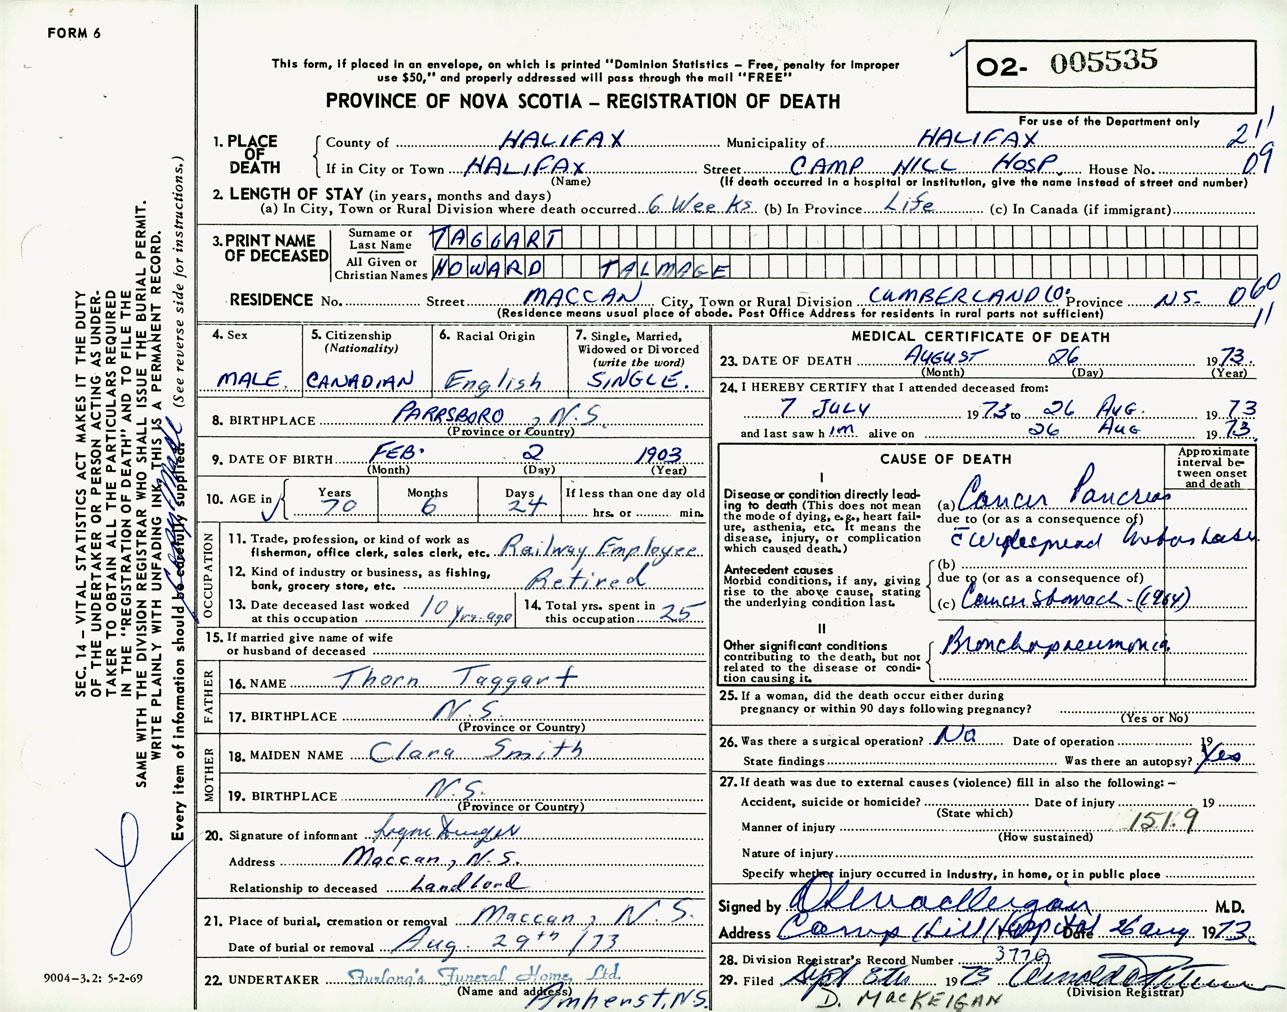 FORM 6
This form, if placed in an envelope, on which is printed "Dominion Statistics – Free, penalty for improper
use $50," and properly addressed will pass through the mail "FREE"
PROVINCE OF NOVA SCOTIA – REGISTRATION OF DEATH
02- 005535
For use of the Department only
1. PLACE OF DEATH County of HALIFAX Municipality of HALIFAX 211
If in City or Town HALIFAX Street CAMP HILL HOSP. House No. 09
(Name) (If death occurred in a hospital or institution, give the name instead of street and number)
2. LENGTH OF STAY (in years, months and days)
(a) In City, Town or Rural Division where death occurred 6 Weeks (b) In Province Life (c) In Canada (if immigrant)
3. PRINT NAME OF DECEASED Surname or Last Name TAGGART
All Given or Christian Names HOWARD TALMAGE
RESIDENCE No. Street MACCAN City, Town or Rural Division CUMBERLAND CO. Province N.S. 060
(Residence means usual place of abode. Post Office Address for residents in rural parts not sufficient) 11
4. Sex MALE.
5. Citizenship (Nationality) CANADIAN
6. Racial Origin English
7. Single, Married, Widowed or Divorced (write the word) SINGLE.
8. BIRTHPLACE PARRSBORO, N.S.
(Province or Country)
9. DATE OF BIRTH FEB. 2 1903
(Month) (Day) (Year)
10. AGE in Years 70 Months 6 Days 24 If less than one day old hrs. or min.
OCCUPATION
11. Trade, profession, or kind of work as
fisherman, office clerk, sales clerk, etc. Railway Employee
12. Kind of industry or business, as fishing,
bank, grocery store, etc. Retired
13. Date deceased last worked at this occupation 10 yrs. ago
14. Total yrs. spent in this occupation 25
15. If married give name of wife
or husband of deceased
FATHER
16. NAME Thorn Taggart
17. BIRTHPLACE N.S.
(Province or Country)
MOTHER
18. MAIDEN NAME Clara Smith
19. BIRTHPLACE N.S.
(Province or Country)
20. Signature of informant
Address Maccan, N.S.
Relationship to deceased Landlord
21. Place of burial, cremation or removal Maccan, N.S.
Date of burial or removal Aug. 29th /73
22. UNDERTAKER Furlong's Funeral Home, Ltd.
(Name and address) Amherst, N.S.
MEDICAL CERTIFICATE OF DEATH
23. DATE OF DEATH AUGUST 26 1973.
(Month) (Day) (Year)
24. I HEREBY CERTIFY that I attended deceased from:
7 JULY 1973 to 26 AUG. 1973
and last saw him alive on 26 AUG 1973.
CAUSE OF DEATH
Approximate interval between onset and death
I
Disease or condition directly leading to death (This does not mean the mode of dying, e.g., heart failure, asthenia, etc. It means the disease, injury, or complication which caused death.)
(a) Cancer Pancreas
due to (or as a consequence of)
c̄ Widespread metastases
Antecedent causes
Morbid conditions, if any, giving rise to the above cause, stating the underlying condition last.
(b)
due to (or as a consequence of)
(c) Cancer Stomach - (1964)
II
Other significant conditions
contributing to the death, but not related to the disease or condition causing it.
Bronchopneumonia.
25. If a woman, did the death occur either during
pregnancy or within 90 days following pregnancy?
(Yes or No)
26. Was there a surgical operation? No Date of operation 19
State findings Was there an autopsy? Yes
27. If death was due to external causes (violence) fill in also the following: –
Accident, suicide or homicide? Date of injury 19
(State which)
Manner of injury 151.9
(How sustained)
Nature of injury
Specify whether injury occurred in industry, in home, or in public place
Signed by M.D.
Address Camp Hill Hospital Date 26 Aug 1973.
28. Division Registrar's Record Number 3779
29. Filed Sept 8th 1973
(Division Registrar)
D. MACKEIGAN
SEC. 14 – VITAL STATISTICS ACT MAKES IT THE DUTY
OF THE UNDERTAKER OR PERSON ACTING AS UNDER-
TAKER TO OBTAIN ALL THE PARTICULARS REQUIRED
IN THE "REGISTRATION OF DEATH" AND TO FILE THE
SAME WITH THE DIVISION REGISTRAR WHO SHALL ISSUE THE BURIAL PERMIT.
WRITE PLAINLY WITH UNFADING INK, THIS IS A PERMANENT RECORD.
Every item of information should be carefully supplied. (See reverse side for instructions.)
9004–3.2: 5-2-69